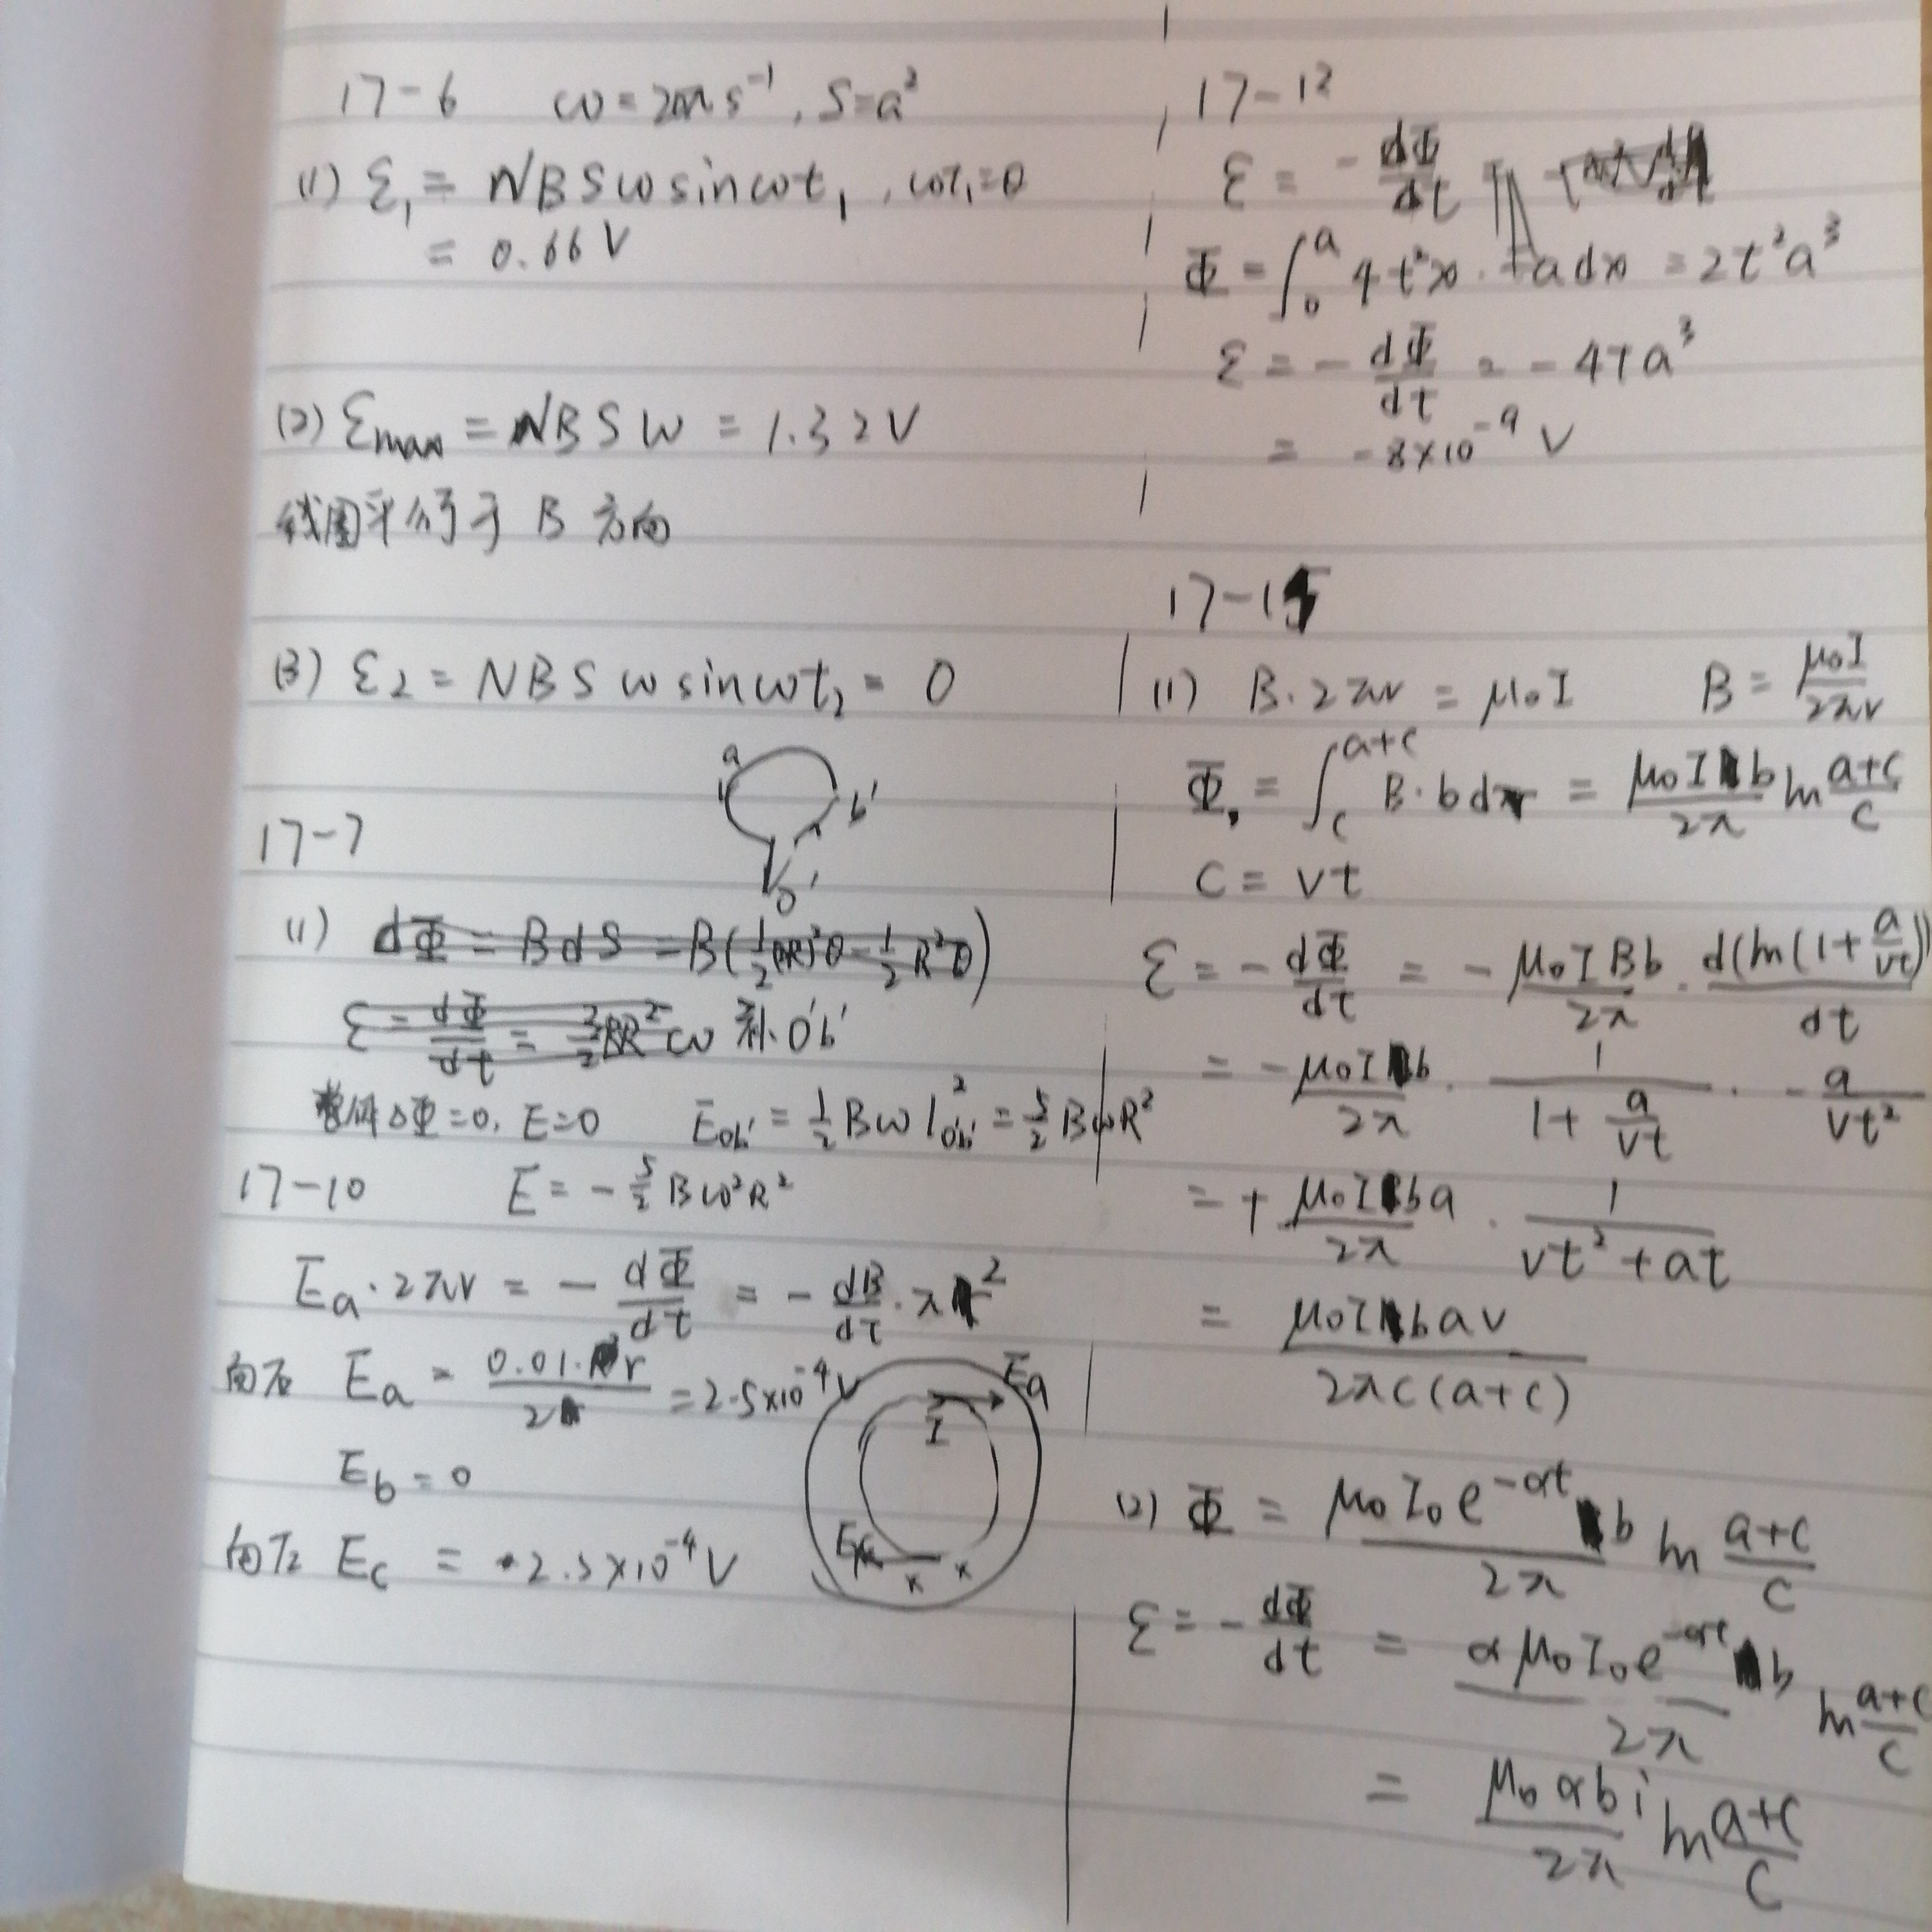 17-6 ω=2πn s⁻¹, S=a²
(1) ε₁ = NBSω sinωt₁, ωt₁=θ
= 0.66 V
(2) εmax = NBSω = 1.32V
线圈平行于 B 方向
(3) ε₂ = NBSω sinωt₂ = 0
a
b'
O'
17-7
(1) dΦ = BdS = B(½(2R)²θ - ½R²θ)
ε = dΦ/dt = 3/2 BR²ω 补 O'b'
整体ΔΦ=0, E=0 Eob' = ½Bωl²o'b' = 5/2 BωR²
17-10 E = -5/2 Bω²R²
Ea·2πr = - dΦ/dt = - dB/dt · πr²
向右 Ea = 0.01·r/2 = 2.5×10⁻⁴V
Eb = 0
向左 Ec = 2.5×10⁻⁴V
Ea
I
Ec
x x
17-12
ε = - dΦ/dt
Φ = ∫₀ᵃ 4t²x · a dx = 2t²a³
ε = - dΦ/dt = - 4ta³
= -8×10⁻⁹ V
17-15
(1) B·2πr = μ₀I B = μ₀I/2πr
Φ = ∫_c^(a+c) B·b dr = μ₀Ib/2π ln (a+c)/c
C = vt
ε = - dΦ/dt = - μ₀IBb/2π · d(ln(1+a/vt))/dt
= - μ₀Ib/2π · 1/(1+a/vt) · - a/vt²
= + μ₀Iba/2π · 1/(vt²+at)
= μ₀Ibav/2πc(a+c)
(2) Φ = μ₀I₀e^(-αt) b/2π ln (a+c)/c
ε = - dΦ/dt = αμ₀I₀e^(-αt) b/2π ln (a+c)/c
= μ₀αbi/2π ln (a+c)/c